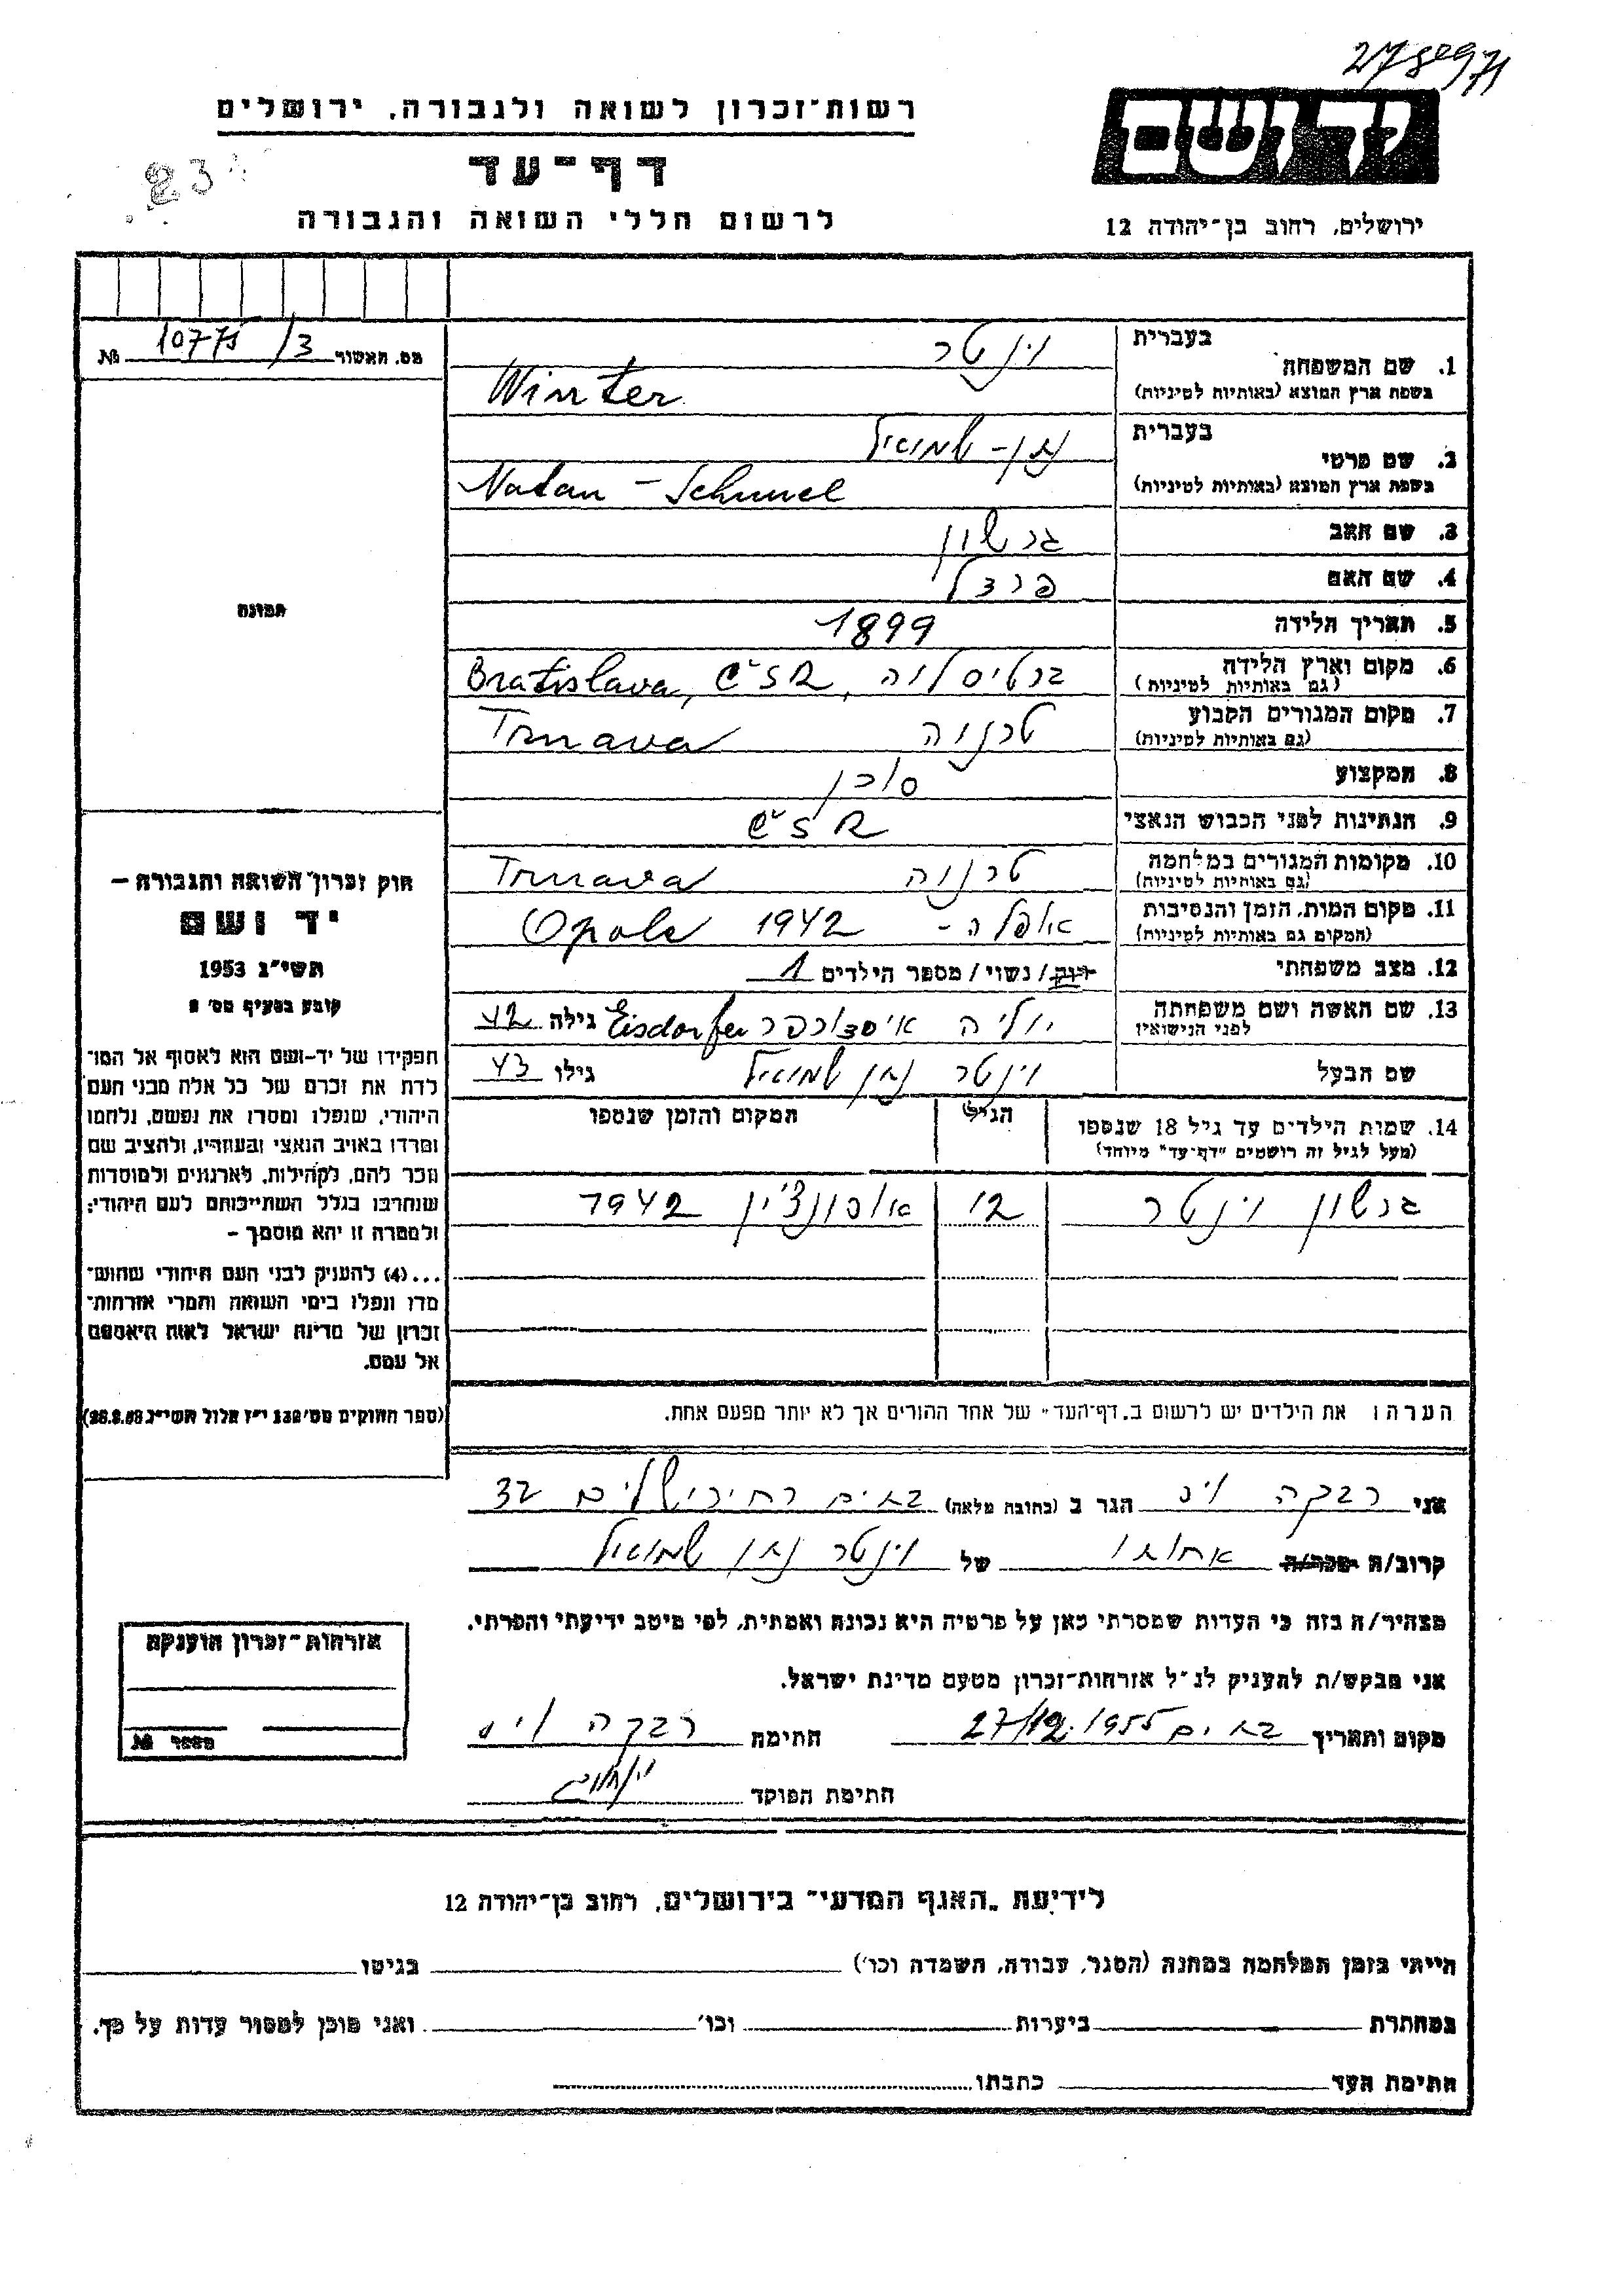 רשות־זכרון לשואה ולגבורה, ירושלים
יד ושם
דף־עד
23
לרשום חללי השואה והגבורה
ירושלים, רחוב בן־יהודה 12
מס. האשור 10775/3 №
תמונה
בעברית
1. שם המשפחה
בשפת ארץ המוצא (באותיות לטיניות)
וינטר
Winter
בעברית
2. שם פרטי
בשפת ארץ המוצא (באותיות לטיניות)
נתן - שמואל
Natan - Schmuel
3. שם האב גרשון
4. שם האם פרצל
5. תאריך הלידה 1899
6. מקום וארץ הלידה ברטיסלוה, Bratislava, ČSR
(גם באותיות לטיניות)
7. מקום המגורים הקבוע טרנוה Trnava
(גם באותיות לטיניות)
8. המקצוע סוכן
9. הנתינות לפני הכבוש הנאצי ČSR
10. מקומות המגורים במלחמה טרנוה Trnava
(גם באותיות לטיניות)
11. מקום המות, הזמן והנסיבות אופלה - 1942 Opole
(המקום גם באותיות לטיניות)
12. מצב משפחתי רווק/נשוי/מספר הילדים 1
13. שם האשה ושם משפחתה יוליה איסדורפר Eisdorfer גילה 42
לפני הנישואין
שם הבעל וינטר נתן שמואל גילו 43
14. שמות הילדים עד גיל 18 שנספו הגיל המקום והזמן שנספו
(מעל לגיל זה רושמים "דף־עד" מיוחד)
גרשון וינטר 12 1942
הערה: את הילדים יש לרשום ב"דף־העד" של אחד ההורים אך לא יותר מפעם אחת.
חוק זכרון השואה והגבורה –
יד ושם
תשי"ג 1953
קובע בסעיף מס' 2
תפקידו של יד־ושם הוא לאסוף אל המו־
לדת את זכרם של כל אלה מבני העם
היהודי, שנפלו ומסרו את נפשם, נלחמו
ומרדו באויב הנאצי ובעוזריו, ולהציב שם
וזכר להם, לקהילות, לארגונים ולמוסדות
שנחרבו בגלל השתייכותם לעם היהודי;
ולמטרה זו יהא מוסמך –
...(4) להעניק לבני העם היהודי שהוש־
מדו ונפלו בימי השואה והמרי אזרחות־
זכרון של מדינת ישראל לאות היאספם
אל עמם.
(ספר החוקים מס' 132 י"ז אלול תשי"ג 28.8.53)
אני רבקה הגר ב (כתובת מלאה) 32
קרוב/ה מכר/ה אחותו של וינטר נתן שמואל
מצהיר/ה בזה כי העדות שמסרתי כאן על פרטיה היא נכונה ואמתית, לפי מיטב ידיעתי והכרתי.
אני מבקש/ת להעניק לנ"ל אזרחות־זכרון מטעם מדינת ישראל.
מקום ותאריך 27/12.1955 חתימה רבקה
חתימת הפוקד
אזרחות־זכרון הוענקה
מספר №
לידיעת "האגף המדעי" בירושלים, רחוב בן־יהודה 12
הייתי בזמן המלחמה במחנה (הסגר, עבודה, השמדה וכו') בגיטו
במחתרת ביערות וכו' ואני מוכן למסור עדות על כך.
חתימת העד כתבתו